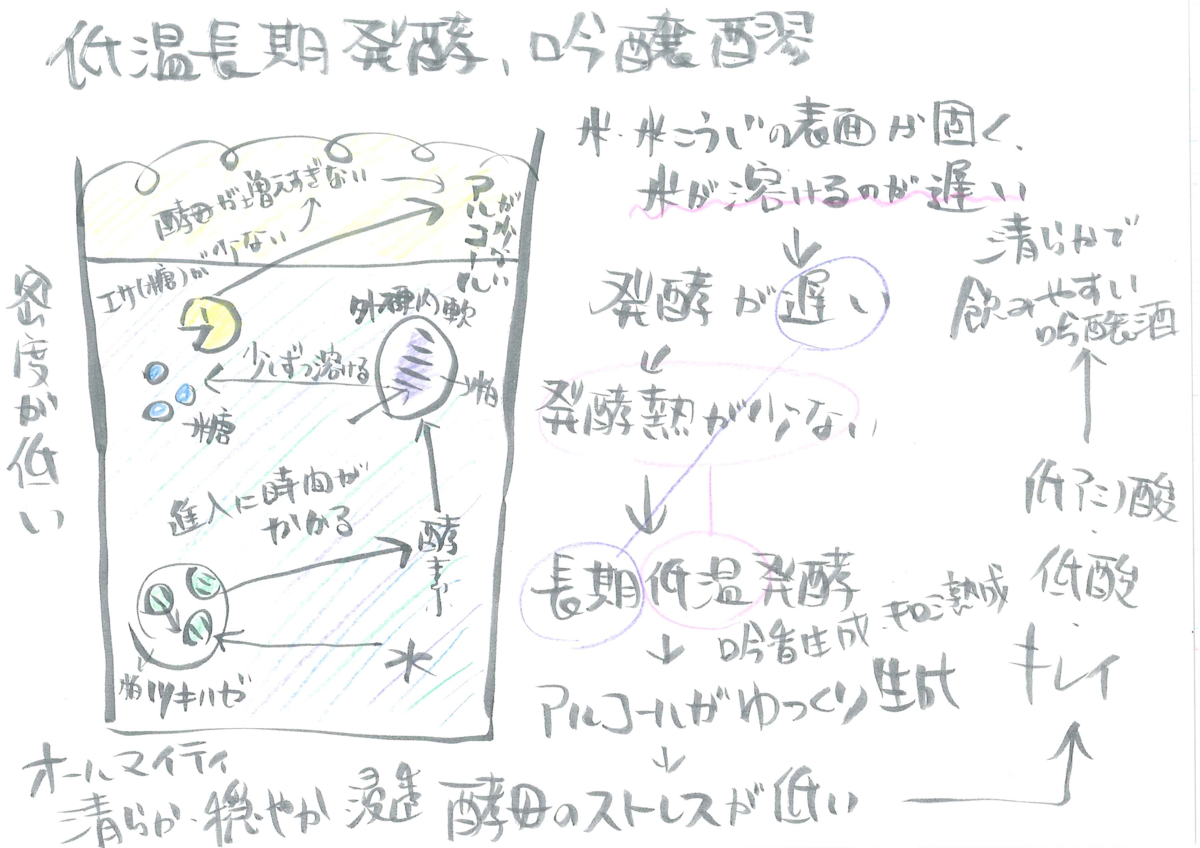 低温長期発酵、吟醸醪
米・米こうじの表面が固く、
米が溶けるのが遅い
発酵が遅い
発酵熱が少ない
長期低温発酵
吟香生成
アルコールがゆっくり生成
酵母のストレスが低い
キレイ
低酸・
低アミノ酸
清らかで
飲みやすい
吟醸酒
密度が低い
酵母が増えすぎない
アルコールが少ない
エサ(糖)が少ない
外硬内軟
少しずつ溶ける
糖
進入に時間が
かかる
酵素
水
ツキハゼ
オールマイティ
清らか・穏やか